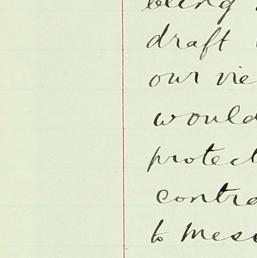 being
draft
our vie
would
protect
contra
to mess